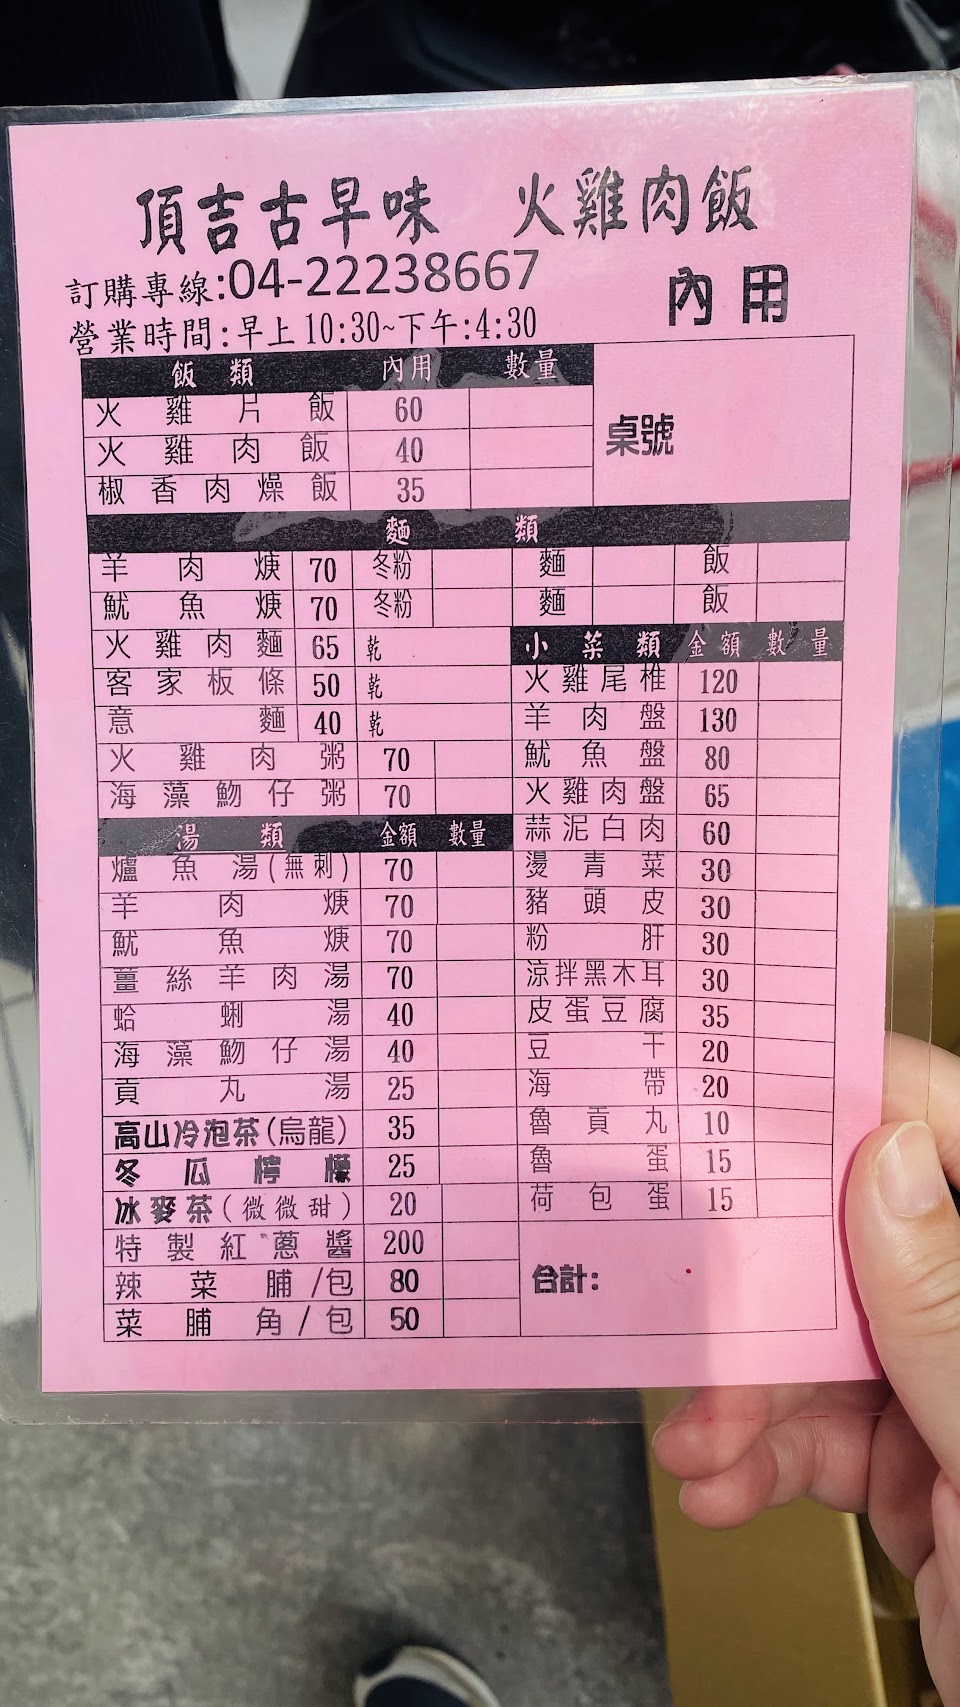 頂吉古早味 火雞肉飯
訂購專線:04-22238667
內用
營業時間:早上10:30~下午:4:30
飯類 內用 數量
火雞片飯 60
火雞肉飯 40
椒香肉燥飯 35
桌號
麵類
羊肉焿 70 冬粉 麵 飯
魷魚焿 70 冬粉 麵 飯
火雞肉麵 65 乾
客家板條 50 乾
意麵 40 乾
火雞肉粥 70
海藻魩仔粥 70
湯類 金額 數量
爐魚湯(無刺) 70
羊肉焿 70
魷魚焿 70
薑絲羊肉湯 70
蛤蜊湯 40
海藻魩仔湯 40
貢丸湯 25
高山冷泡茶(烏龍) 35
冬瓜檸檬 25
冰麥茶(微微甜) 20
特製紅蔥醬 200
辣菜脯/包 80
菜脯角/包 50
小菜類 金額 數量
火雞尾椎 120
羊肉盤 130
魷魚盤 80
火雞肉盤 65
蒜泥白肉 60
燙青菜 30
豬頭皮 30
粉肝 30
涼拌黑木耳 30
皮蛋豆腐 35
豆干 20
海帶 20
魯貢丸 10
魯蛋 15
荷包蛋 15
合計: